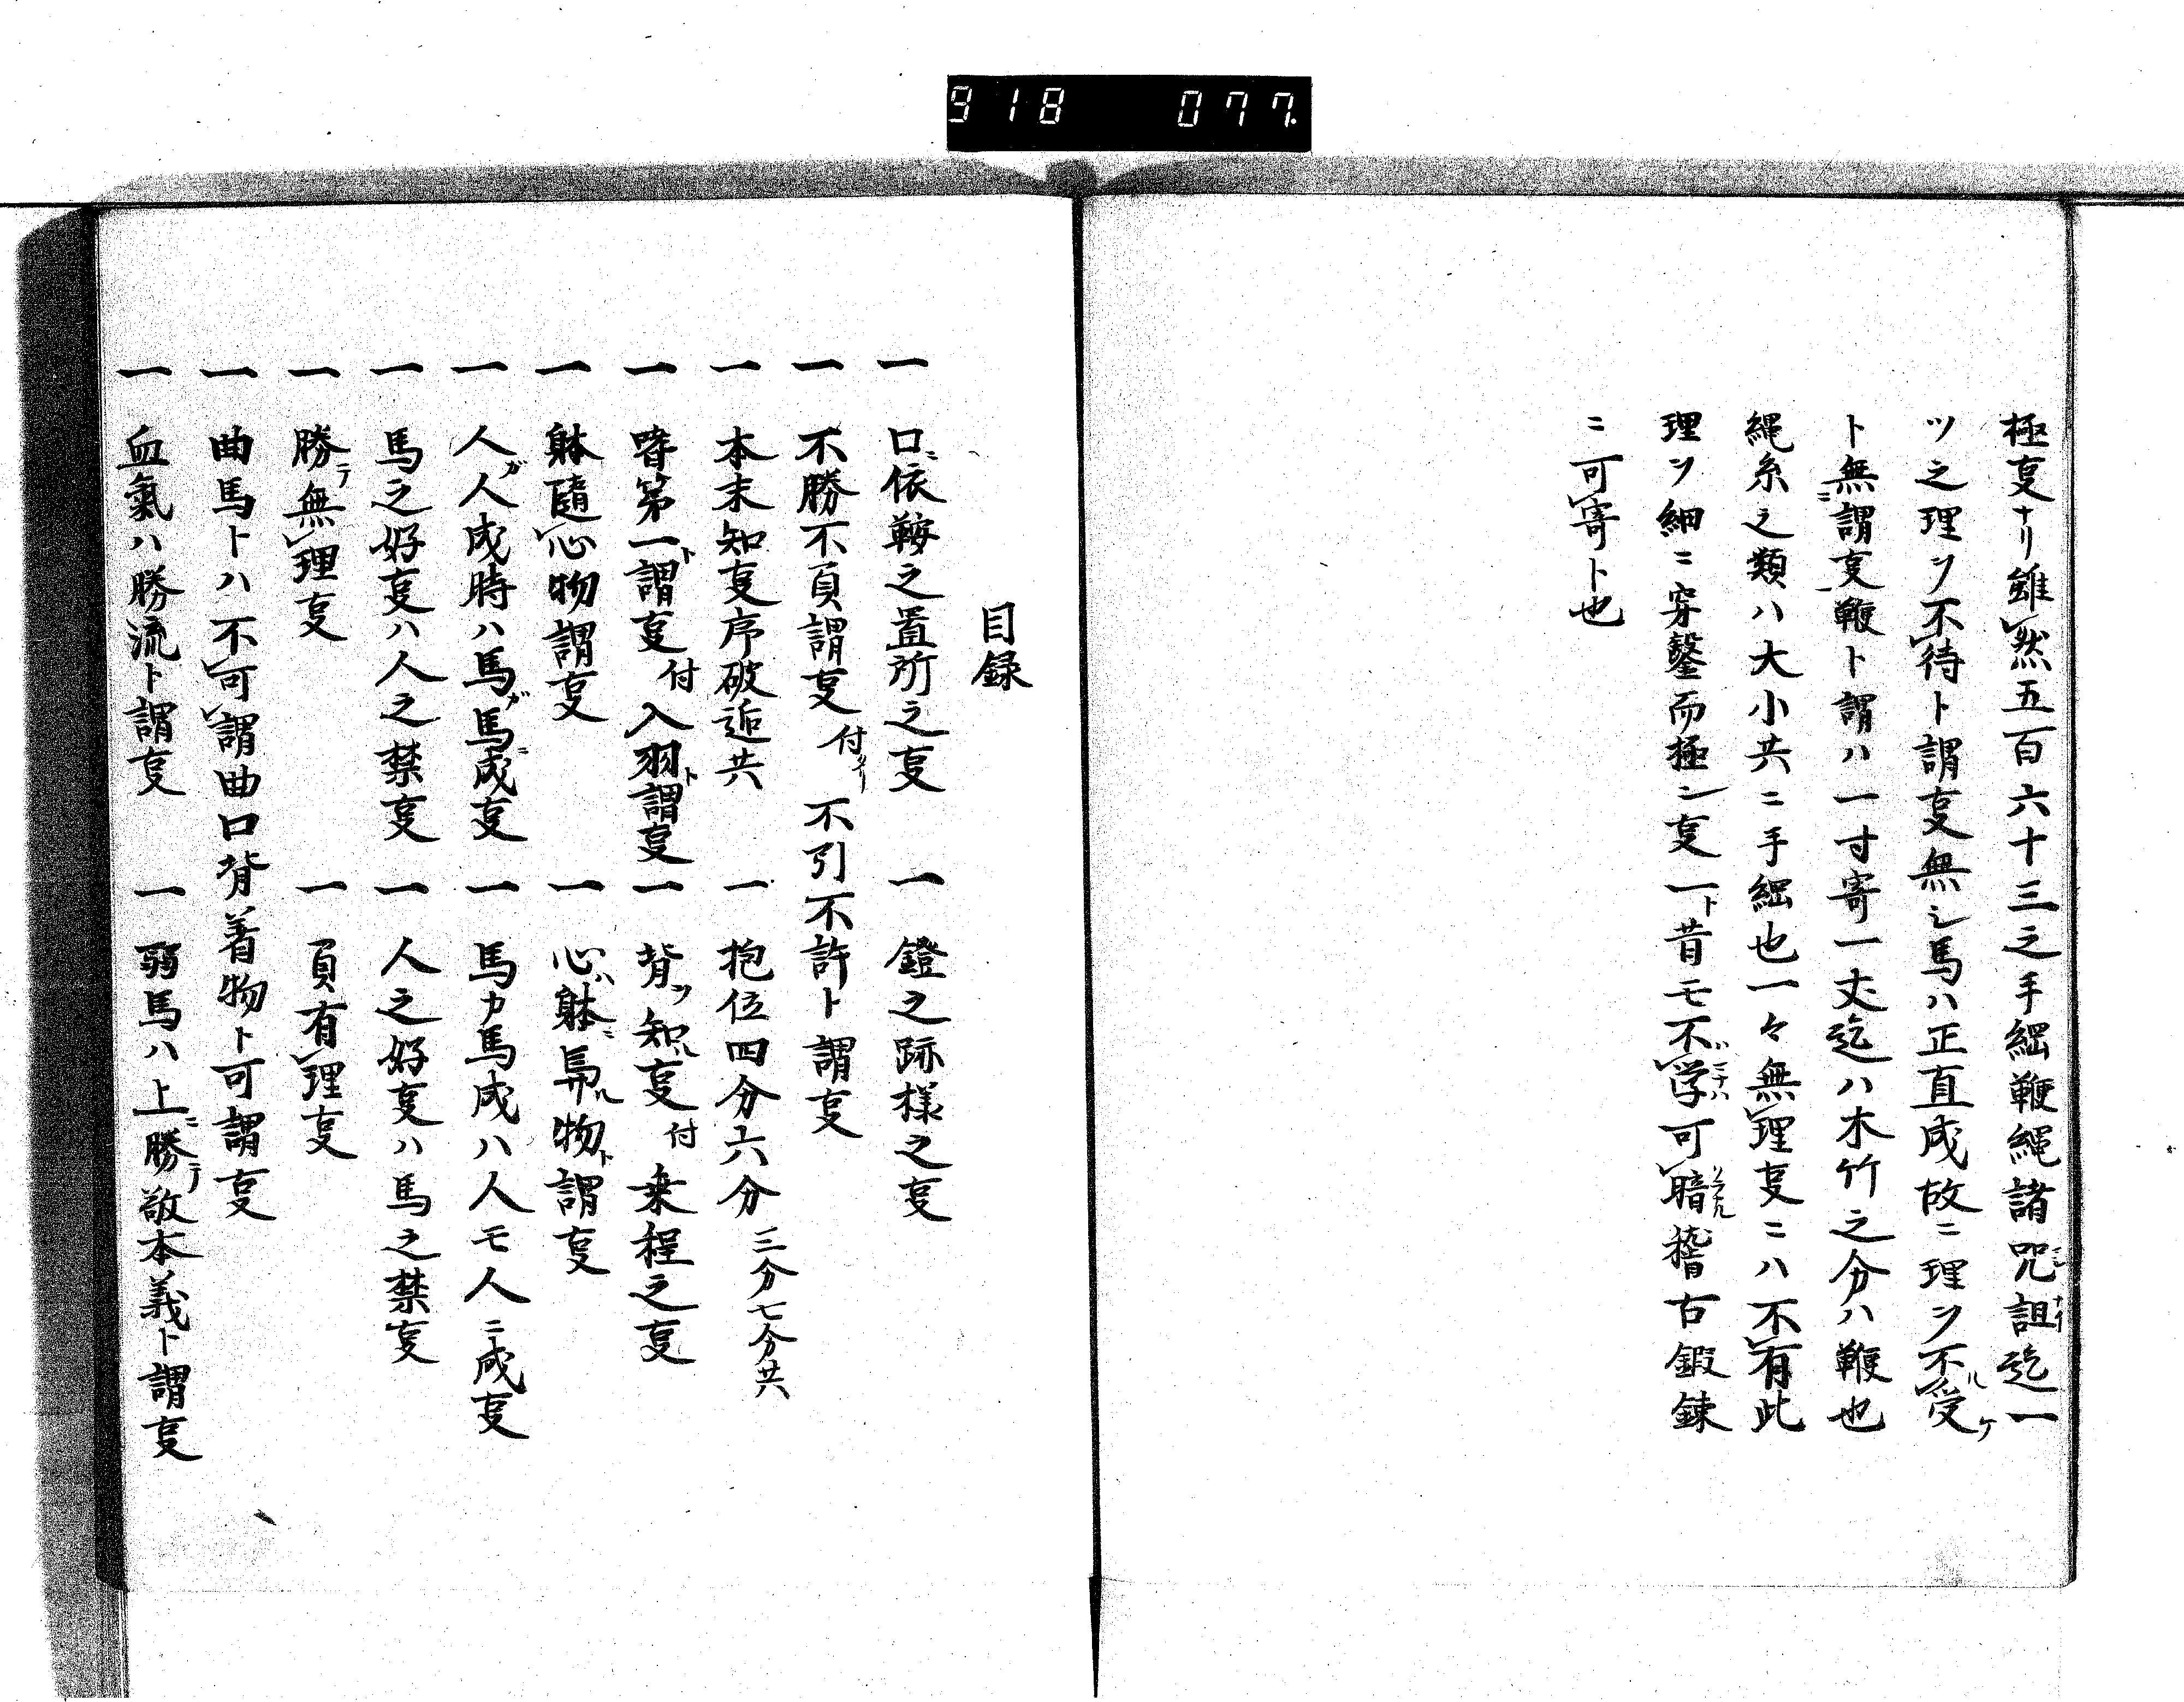 918 077.
極叓ナリ雖然五百六十三之手綱鞭縄諸咒詛迄一
ツ之理ヲ不待ト謂叓無シ馬ハ正直成故ニ理ヲ不受
ト無謂叓鞭ト謂ハ一寸寄一丈迄ハ木竹之分ハ鞭也
縄糸之類ハ大小共ニ手綱也一々無理叓ニハ不有此
理ヲ細ニ穿鑿而極シ叓一ト昔モ不学可暗稽古鍜錬
ニ可寄ト也
目録
一 口ニ依鞍之置所之叓 一 鐙之跡様之叓
一 不勝不負謂叓 付タリ 不引不許ト謂叓
一 本末知叓序破逅共 一 抱位四分六分 三分七分共
一 第一ト謂叓 付 入羽ト謂叓 一 背ヲ知ル叓 付 乗程之叓
一 躰随心物謂叓 一 心ハ躰ニ物ト謂叓
一 人ガ人成時ハ馬ガ馬ニ成叓 一 馬カ馬成ハ人モ人ニ成叓
一 馬之好叓ハ人之禁叓 一 人之好叓ハ馬之禁叓
一 勝テ無理叓 一 負有理叓
一 曲馬トハ不可謂曲口背着物ト可謂叓
一 血氣ハ勝流ト謂叓 一 弱馬ハ上ニ勝テ敬本義ト謂叓